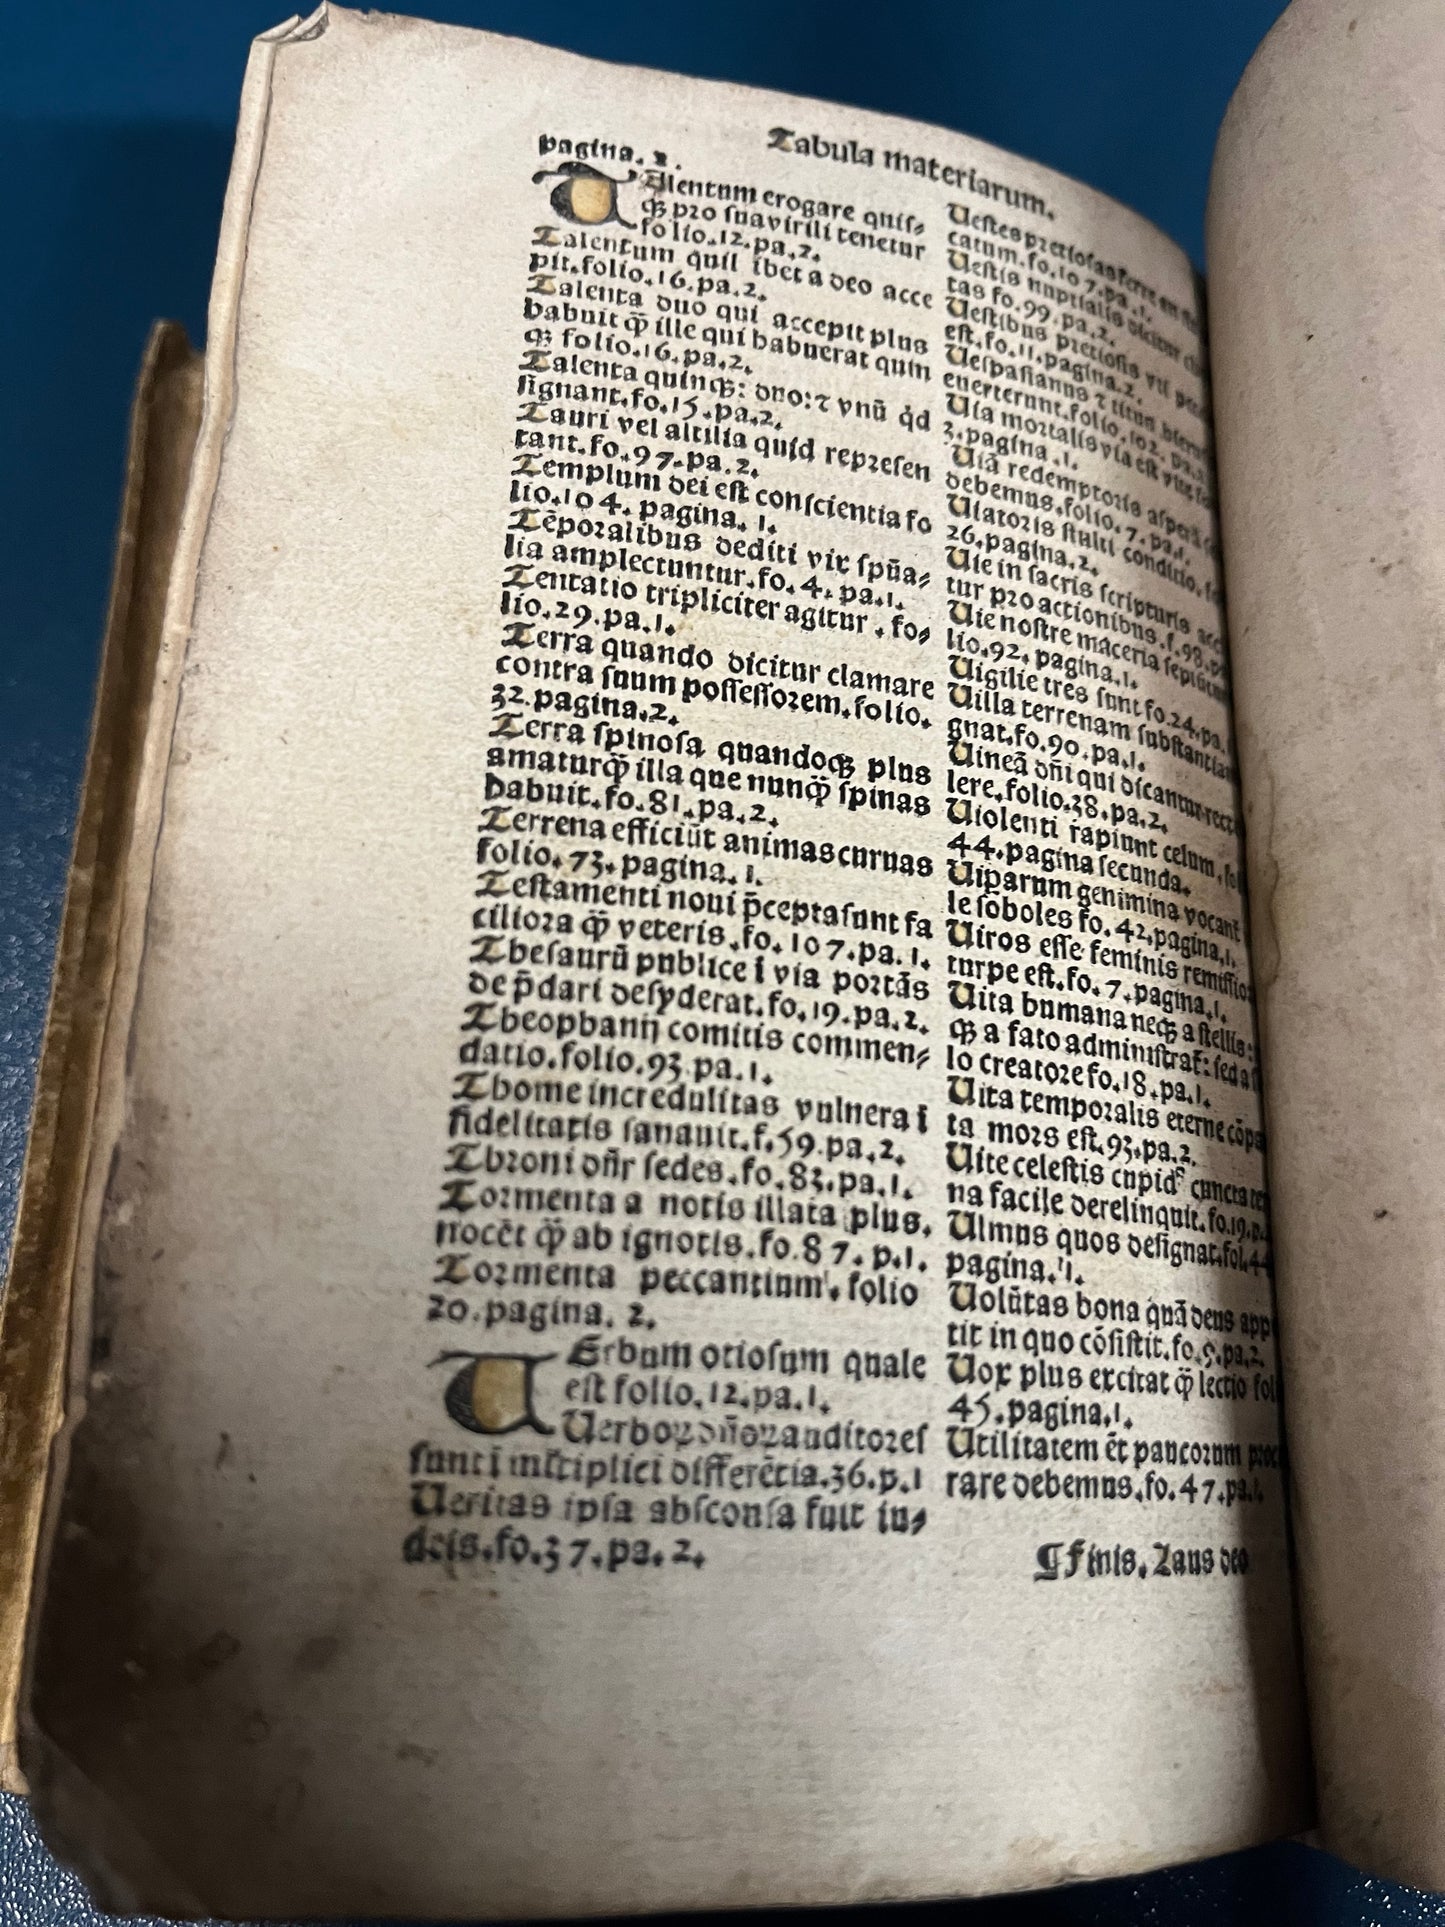 Tabula materiarum.
pagina. 2.
TAlentum erogare quiſ⸗
qꝫ pro ſua virili tenetur
folio.12.pa.2.
Talentum quil ibet a deo acce
pit.folio.16.pa.2.
Talenta duo qui accepit plus
habuit q̃ȝ ille qui habuerat quin
qꝫ folio.16.pa.2.
Talenta quinqꝫ: duo:⁊ vnū qd̓
ſignant.fo.15.pa.2.
Tauri vel altilia quid repreſen
tant.fo.97.pa.2.
Templum dei eſt conſcientia fo
lio.104. pagina. 1.
Tēporalibus dediti vix ſpūa⸗
lia amplectuntur.fo.4. pa.1.
Tentatio tripliciter agitur . fo⸗
lio.29.pa.1.
Terra quando dicitur clamare
contra ſuum poſſeſſorem.folio.
32.pagina.2.
Terra ſpinoſa quandoqꝫ plus
amatur q̃ȝ illa que nunq̃ȝ ſpinas
habuit.fo.81.pa.2.
Terrena efficiūt animas curuas
folio.73.pagina.1.
Teſtamenti noui p̄cepta ſunt fa
ciliora q̃ȝ veteris.fo.107.pa.1.
Theſaurū publice ī via portās
dep̄dari deſyderat.fo.19.pa.2.
Theophanij comitis commen⸗
datio.folio.93.pa.1.
Thome incredulitas vulnera ī
fidelitatis ſanauit.f.59.pa.2.
Throni dn̄r ſedes.fo.83.pa.1.
Tormenta a notis illata plus.
nocēt q̃ȝ ab ignotis.fo.87.p.1.
Tormenta peccantium. folio
20.pagina. 2.
VErbum otioſum quale
eſt folio.12.pa.1.
Verboꝝ dn̄oꝝ auditoreſ
ſunt ī multiplici differētia.36.p.1
Veritas ipſa abſconſa fuit iu⸗
deis.fo.37.pa.2.
Veſtes pretioſas ferre
catum.fo.107.pa.1.
Veſtis nuptialis dicitur
tas fo.99.pa.2.
Veſtibus pretioſis vti
eſt.fo.11.pagina.2.
Veſpaſianus ⁊ titus
euerterunt.folio.102. pa.
Via mortalis via eſt
3.pagina .1.
Viā redemptoris
debemus.folio.7.pa.1.
Viatoris ſtulti conditio.
26.pagina.2.
Vie in ſacris ſcripturis
tur pro actionibus.f.98.
Vie noſtre maceria
lio.92. pagina.1.
Vigilie tres ſunt fo.24.pa.
Villa terrenam ſubſtantiam
gnat.fo.90.pa.1.
Vineā dn̄i qui dicantur recte
lere.folio.38.pa.2.
Violenti rapiunt celum.
44.pagina ſecunda.
Viparum genimina vocant
le ſoboles fo.42.pagina.1.
Viros eſſe feminis
turpe eſt.fo.7.pagina.1.
Vita humana neqꝫ a ſtellis:
qꝫ a fato adminiſtrat̄: ſed a
lo creatore fo.18.pa.1.
Vita temporalis eterne cōpa
ta mors eſt.93.pa.2.
Vite celeſtis cupidꝰ cuncta
na facile derelinquit.fo.19.
Vlmus quos deſignat.fol.44
pagina.1.
Volūtas bona quā deus app
tit in quo cōſiſtit.fo.9.pa.2.
Vox plus excitat q̃ȝ lectio fol
45.pagina.1.
Vtilitatem ēt paucorum
rare debemus.fo.47.pa.1.
¶Finis. Laus deo